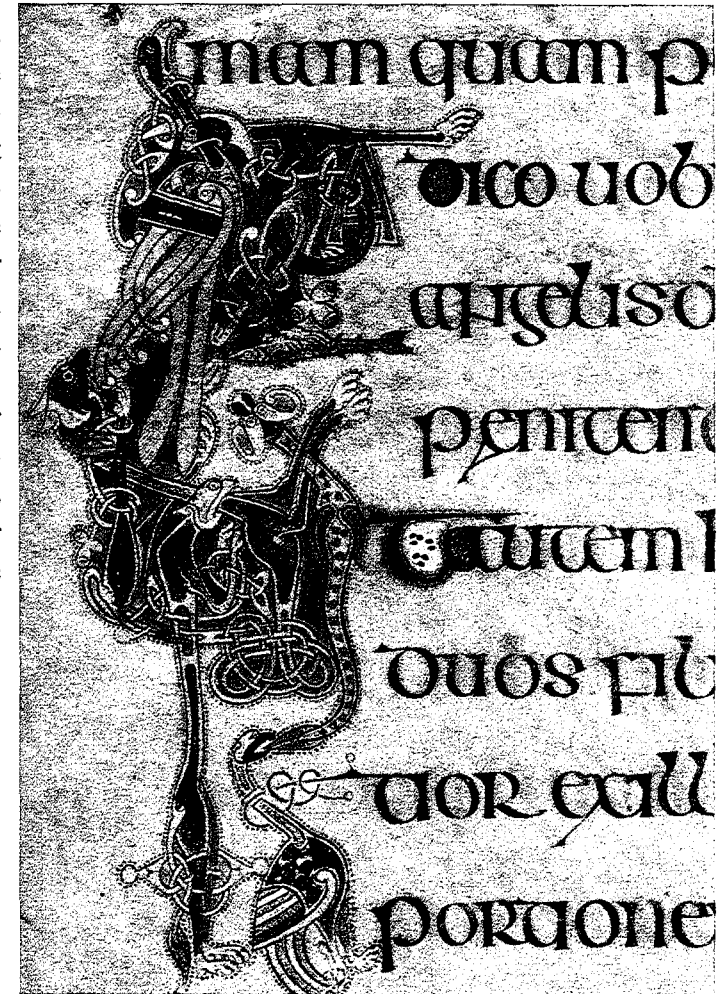 mam quam p
dico uob
angelis d
penitent
autem h
duos fili
tior exill
portione